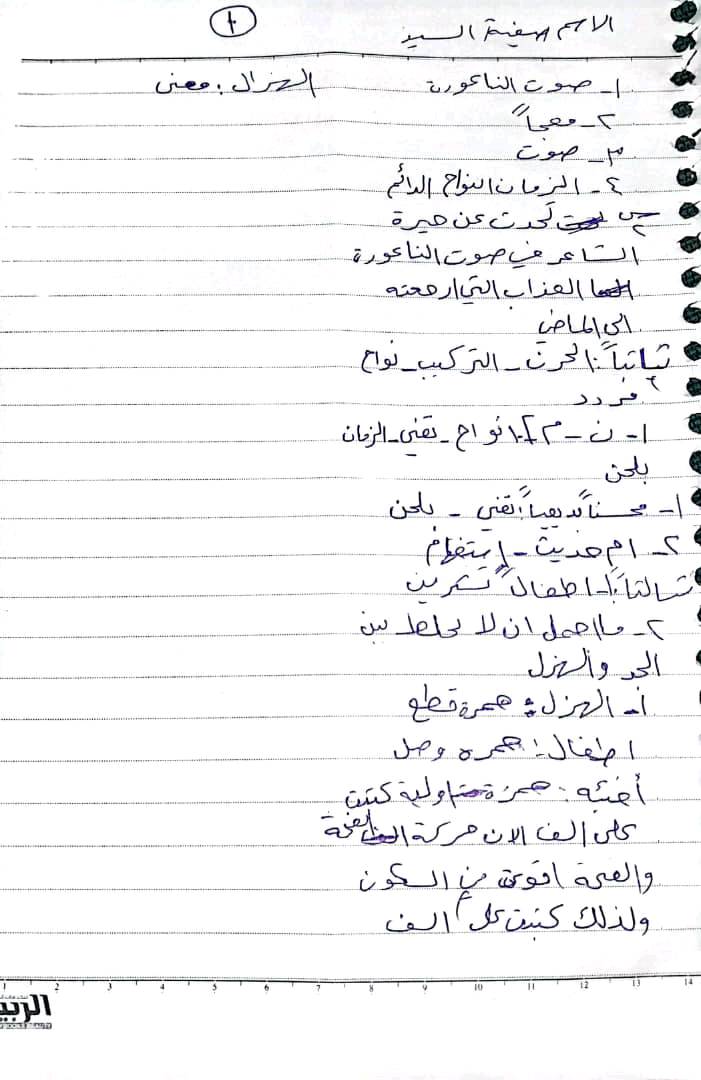 ١٠
الاسم صفية السيد
١- صوت الناعورة الهزال: معنى
٢- معجباً
٣- صوت
٤- الزمان النواح الدائم
س٢ تحدث عن حيرة
الشاعر في صوت الناعورة
العذاب التي ارجعته
الى الماضي
ثانياً: الحزن - التركيب - نواح
مردد
١- ن - م ٢. نواح - تغني - الزمان
بلحن
١- محسناً بديعياً: تغني - بلحن
٢- ام حديث - إستفهام
ثالثاً: ١- اطفال تشرين
٢- ما اجمل ان لا يخلط بين
الجد والهزل
أ- الهزل: همزة قطع
اطفال: همزه وصل
أفئته: همزة متاولية كتبت
على الف الان حركة الفتحة
والفتحة اقوى من السكون
ولذلك كتبت على الف
1 2 3 4 5 6 7 8 9 10 11 12 13 14